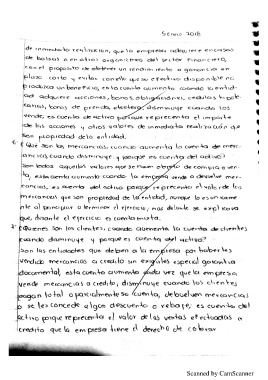 Enero 2018
de inmediata realización, que la empresa adquiere
de bolsas en otros organismos del sector financiero,
con el proposito de obtener un rendimiento o ganancia en
plazo corto y evitar con ello que su efectivo disponible no
produzca un beneficio, esta cuenta aumenta cuando la entidad
adquiere acciones, bonos, obligaciones, cedulas hipote-
carias, bonos de prenda, etcetera, disminuye cuando los
vende; es cuenta de activo porque representa el importe
de las acciones y otros valores de inmediata realización que
son propiedad de la entidad.
¿Que son las mercancias, cuando aumenta la cuenta de merc-
ancias, cuando disminuye y porque es cuenta del activo?
Son todos aquellos valores que se tienen objeto de compra o ven-
ta, esta cuenta aumenta cuando la empresa vende o devuelve mer-
cancias, es cuenta del activo porque representa el valor de las
mercancias que son propiedad de la entidad, aunque la
al principiar o terminar el ejercicio, mas delante se explicara
que, durante el ejercicio es cuenta mixta.
¿Quieres son los clientes, cuando aumenta la cuenta de clientes
cuando disminuye y porque es cuenta del activo?
Son las entidades que deben a la empresa por haberles
vendido mercancias a credito sin exigirles especial garantia
documental, esta cuenta aumenta cada vez que la empresa
vende mercancias a credito, disminuye cuando los clientes
pagan total o parcialmente su cuenta, devuelven mercancias
o se les concede algun descuento o rebaja; es cuenta del
activo porque representa el valor de las ventas efectuadas a
credito que la empresa tiene el derecho de cobrar
Scanned by CamScanner